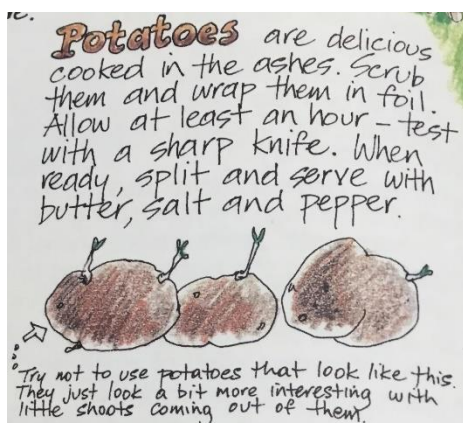 Potatoes are delicious
cooked in the ashes. Scrub
them and wrap them in foil.
Allow at least an hour – test
with a sharp knife. When
ready, split and serve with
butter, salt and pepper.
Try not to use potatoes that look like this.
They just look a bit more interesting with
little shoots coming out of them.